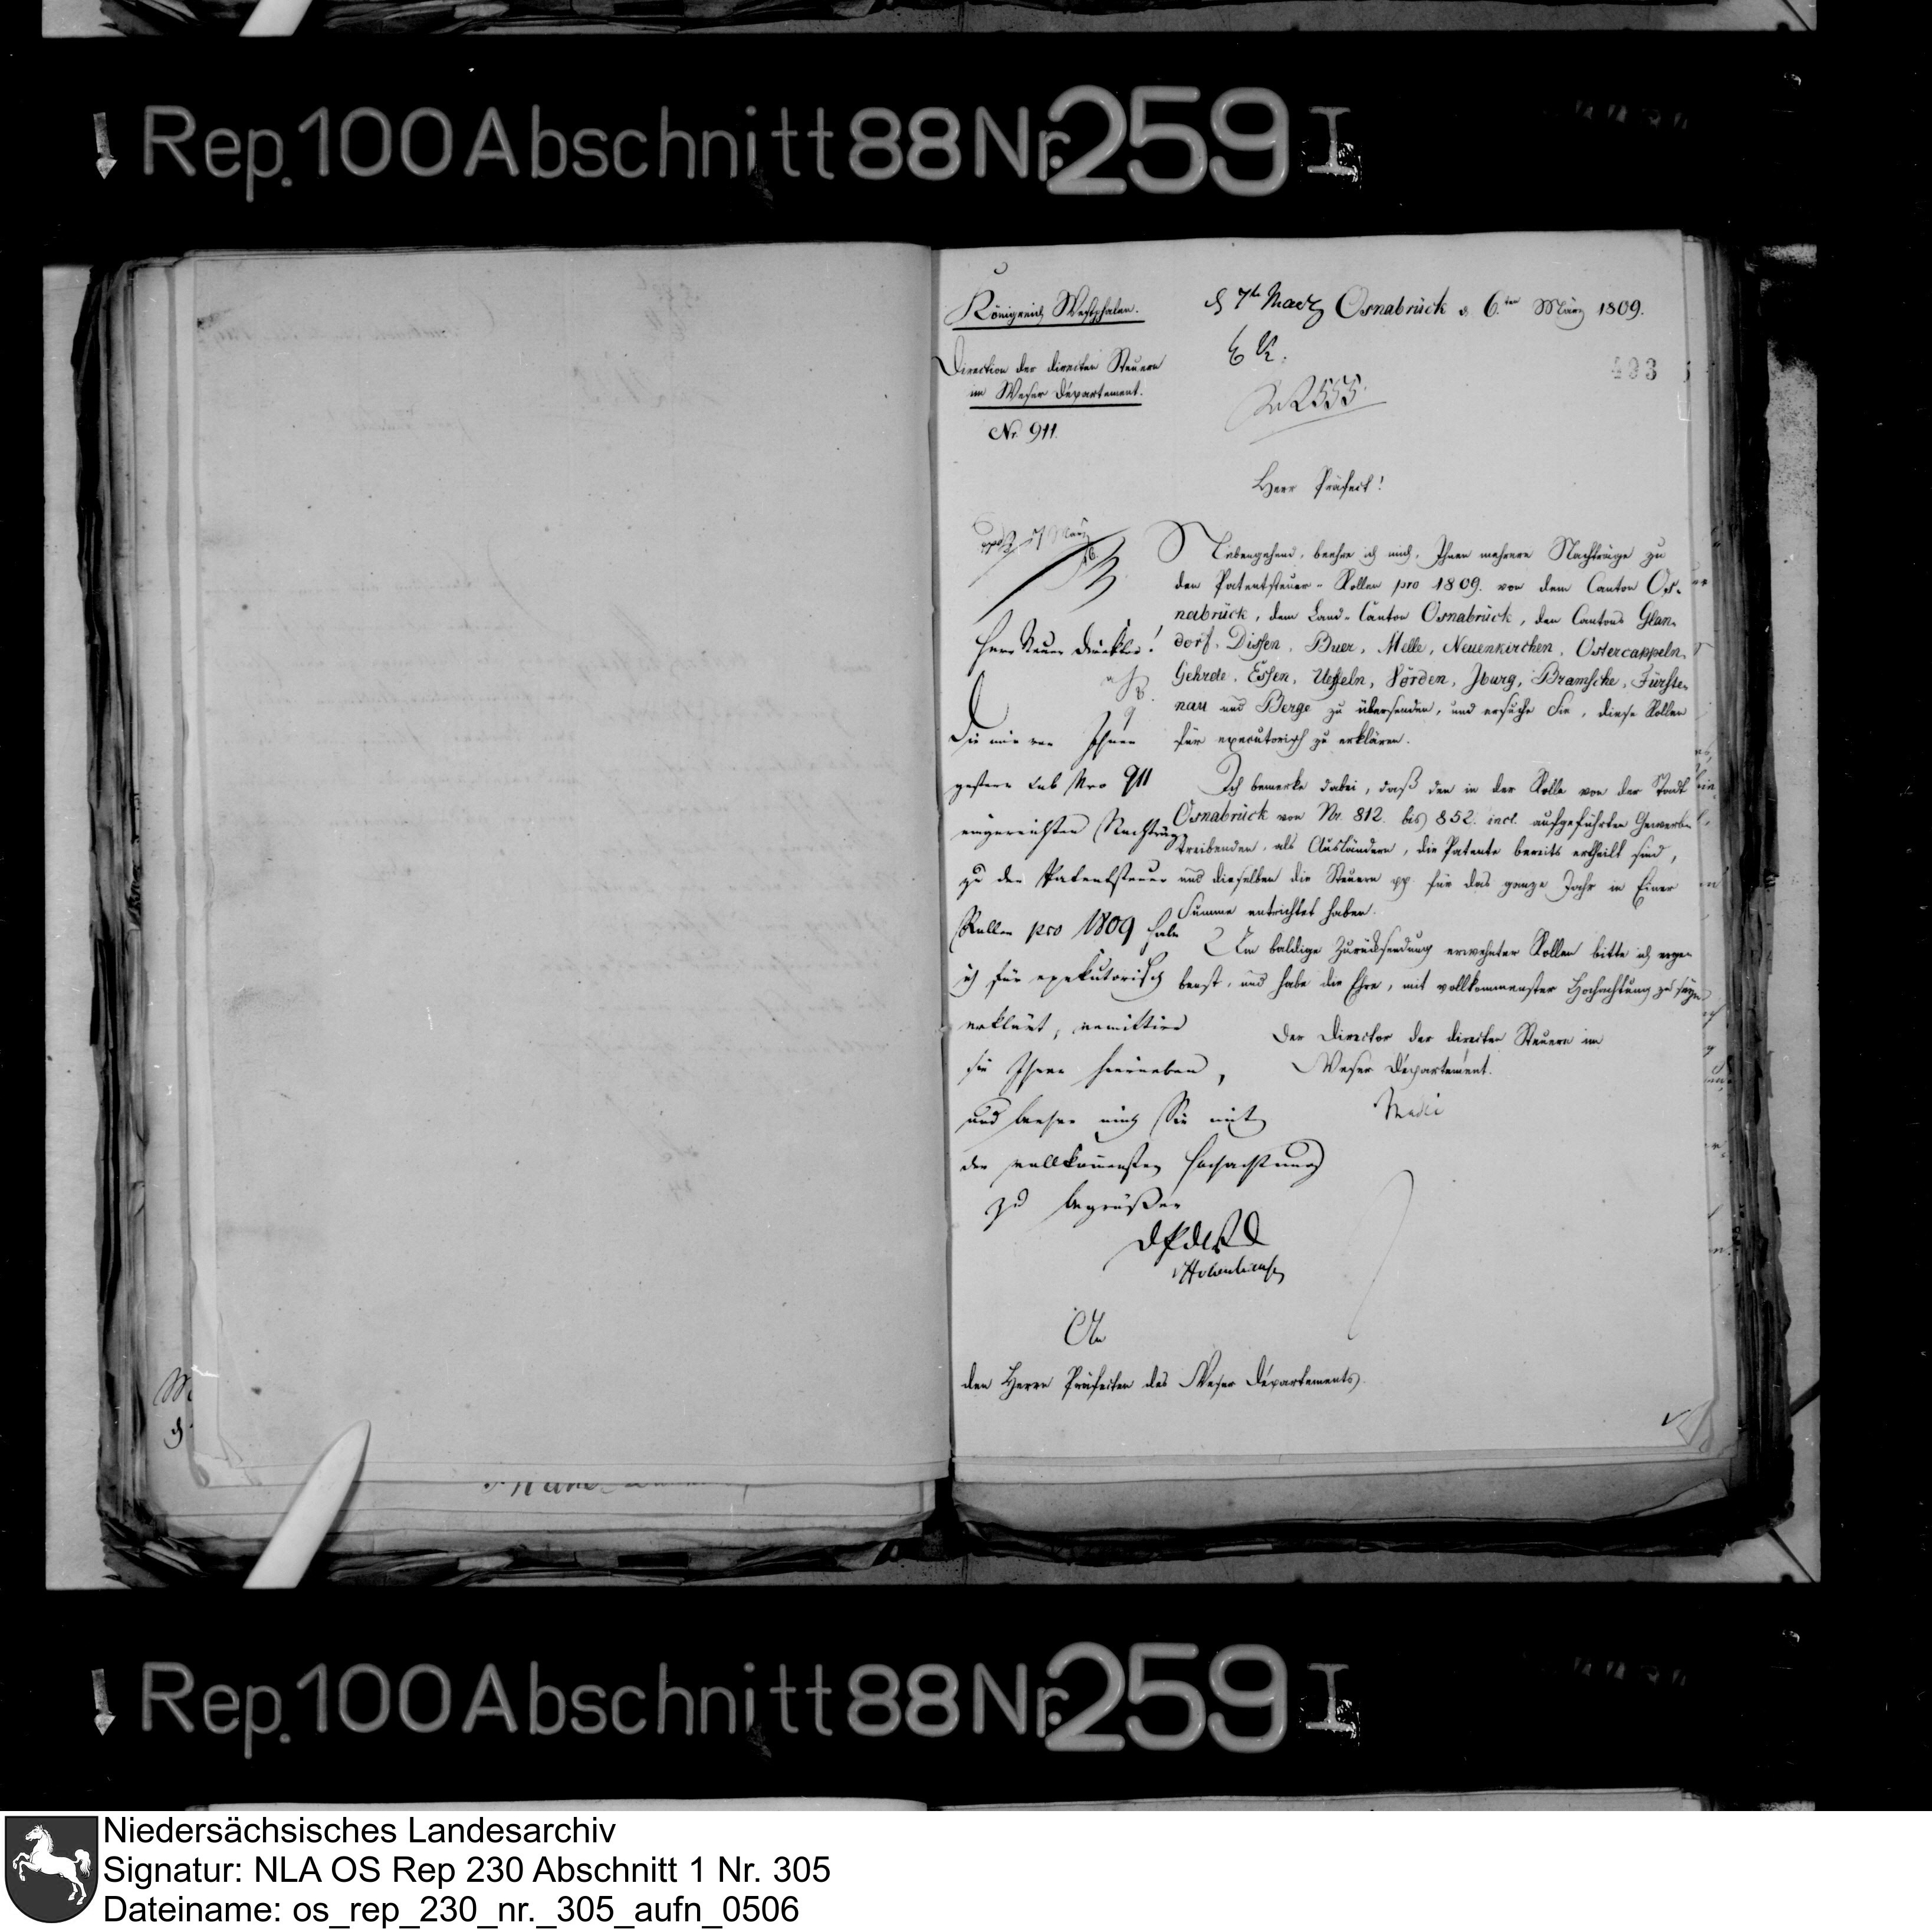 Rep. 100 Abschnitt 88 Nr. 259 I
Königreich Westphalen.
Direction der directen Steuern
im Weser Département.
Nr. 911.
d 7t März Osnabrück d. 6.ten März 1809.
493
N 2555
Herr Präfect!
Nebengehend, beehre ich mich, Ihnen mehrere Nachträge zu
den Patentsteuer-Rollen pro 1809. von dem Canton Os-
nabrück, dem Land-Canton Osnabrück, den Cantons Glan-
dorf, Dissen, Buer, Melle, Neuenkirchen, Ostercappeln,
Gehrde, Essen, Ueffeln, Vörden, Iburg, Bramsche, Fürste-
nau und Berge zu übersenden, und ersuche Sie, diese Rollen
für executorisch zu erklären.
Ich bemerke dabei, daß den in der Rolle von der Stadt
Osnabrück von Nr. 812. bis 852. incl. aufgeführten Gewerbe
treibenden, als Ausländern, die Patente bereits ertheilt sind,
und dieselben die Steuern pp. für das ganze Jahr in Einer
Summe entrichtet haben.
Um baldige Zurücksendung erwehnter Rollen bitte ich erge-
benst, und habe die Ehre, mit vollkommenster Hochachtung zu seyn
Der Director der directen Steuern im
Weser Département.
7 März
Herr Steuer Direktor!
Die mir von Ihnen
gestern sub Nro 911
eingereichten Nachträge
zu den Patentsteuer
Rollen pro 1809 habe
ich für exekutorisch
erklärt, remittire
sie Ihnen hierneben,
und beehre mich Sie mit
der vollkommensten Hochachtung
zu begrüßen
An
den Herrn Präfecten des Weser Départements.
Rep. 100 Abschnitt 88 Nr. 259 I
Niedersächsisches Landesarchiv
Signatur: NLA OS Rep 230 Abschnitt 1 Nr. 305
Dateiname: os_rep_230_nr._305_aufn_0506